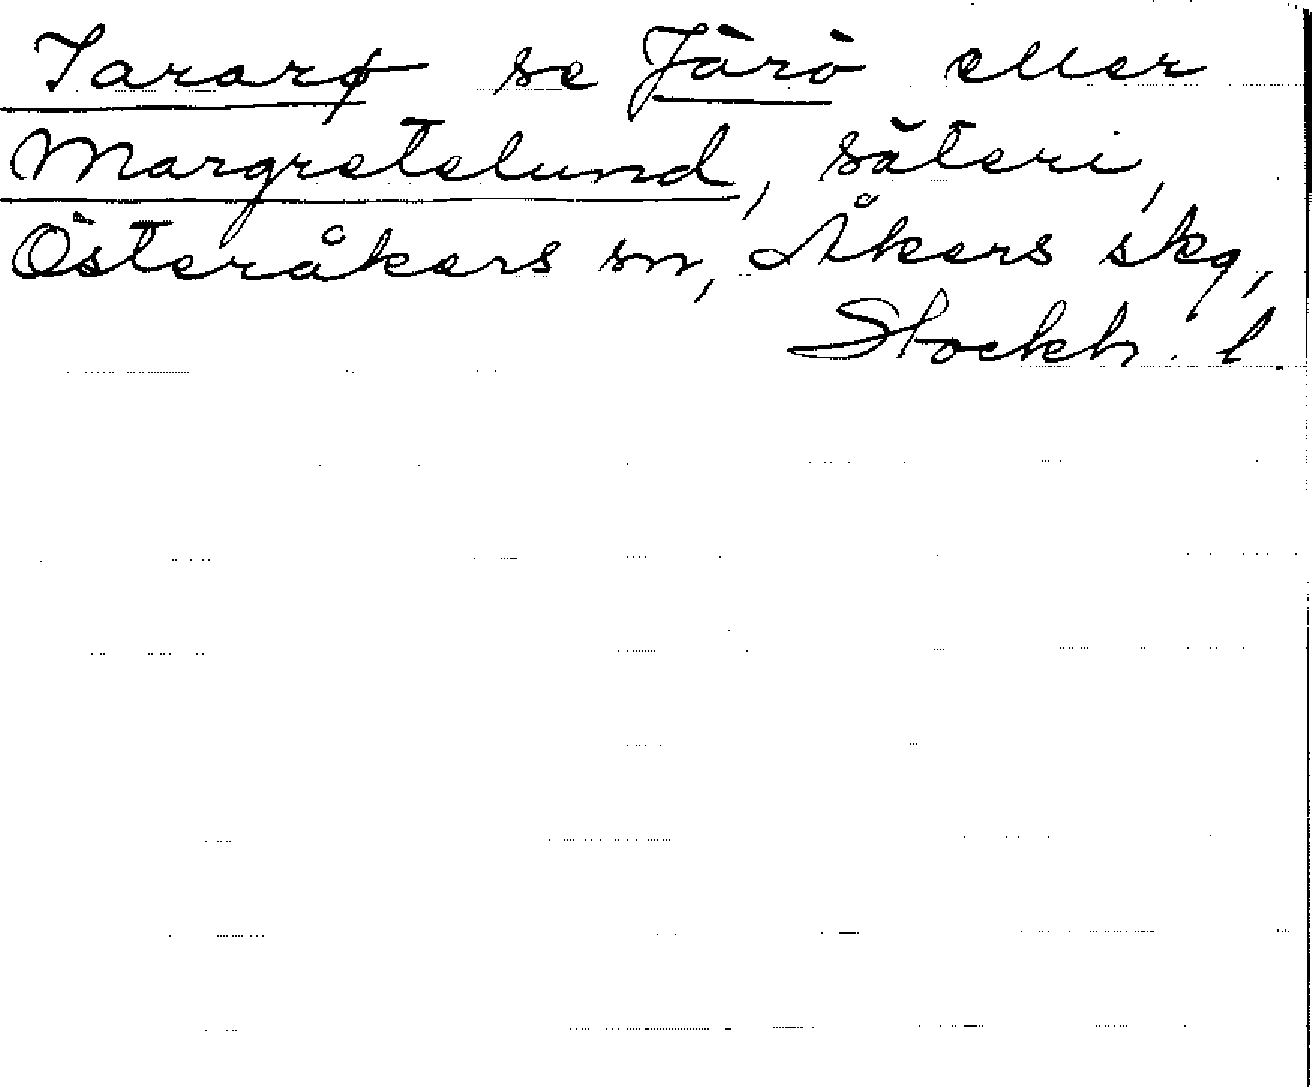 Tararp se Järö eller
Margretelund, säteri,
Österåkers sn, Åkers skg,
Stockh. l